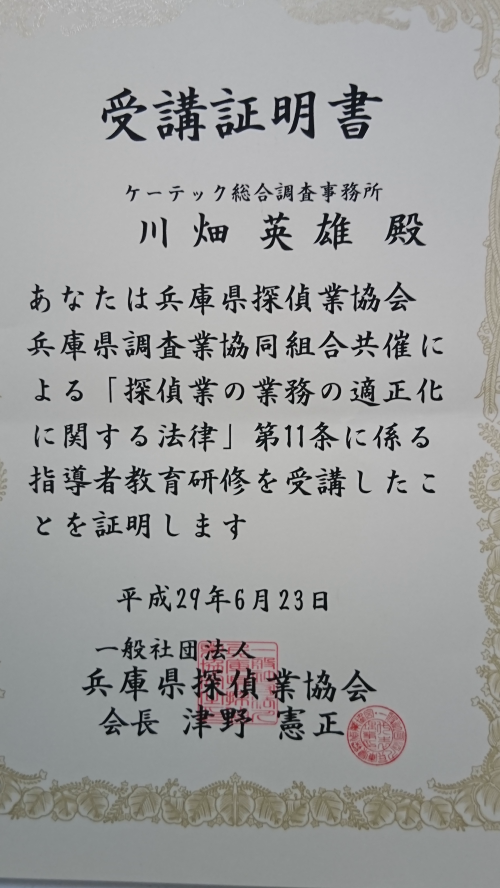 受講証明書
ケーテック総合調査事務所
川畑 英雄 殿
あなたは兵庫県探偵業協会
兵庫県調査業協同組合共催に
よる「探偵業の業務の適正化
に関する法律」第11条に係る
指導者教育研修を受講したこ
とを証明します
平成29年6月23日
一般社団法人
兵庫県探偵業協会
会長 津野 憲正